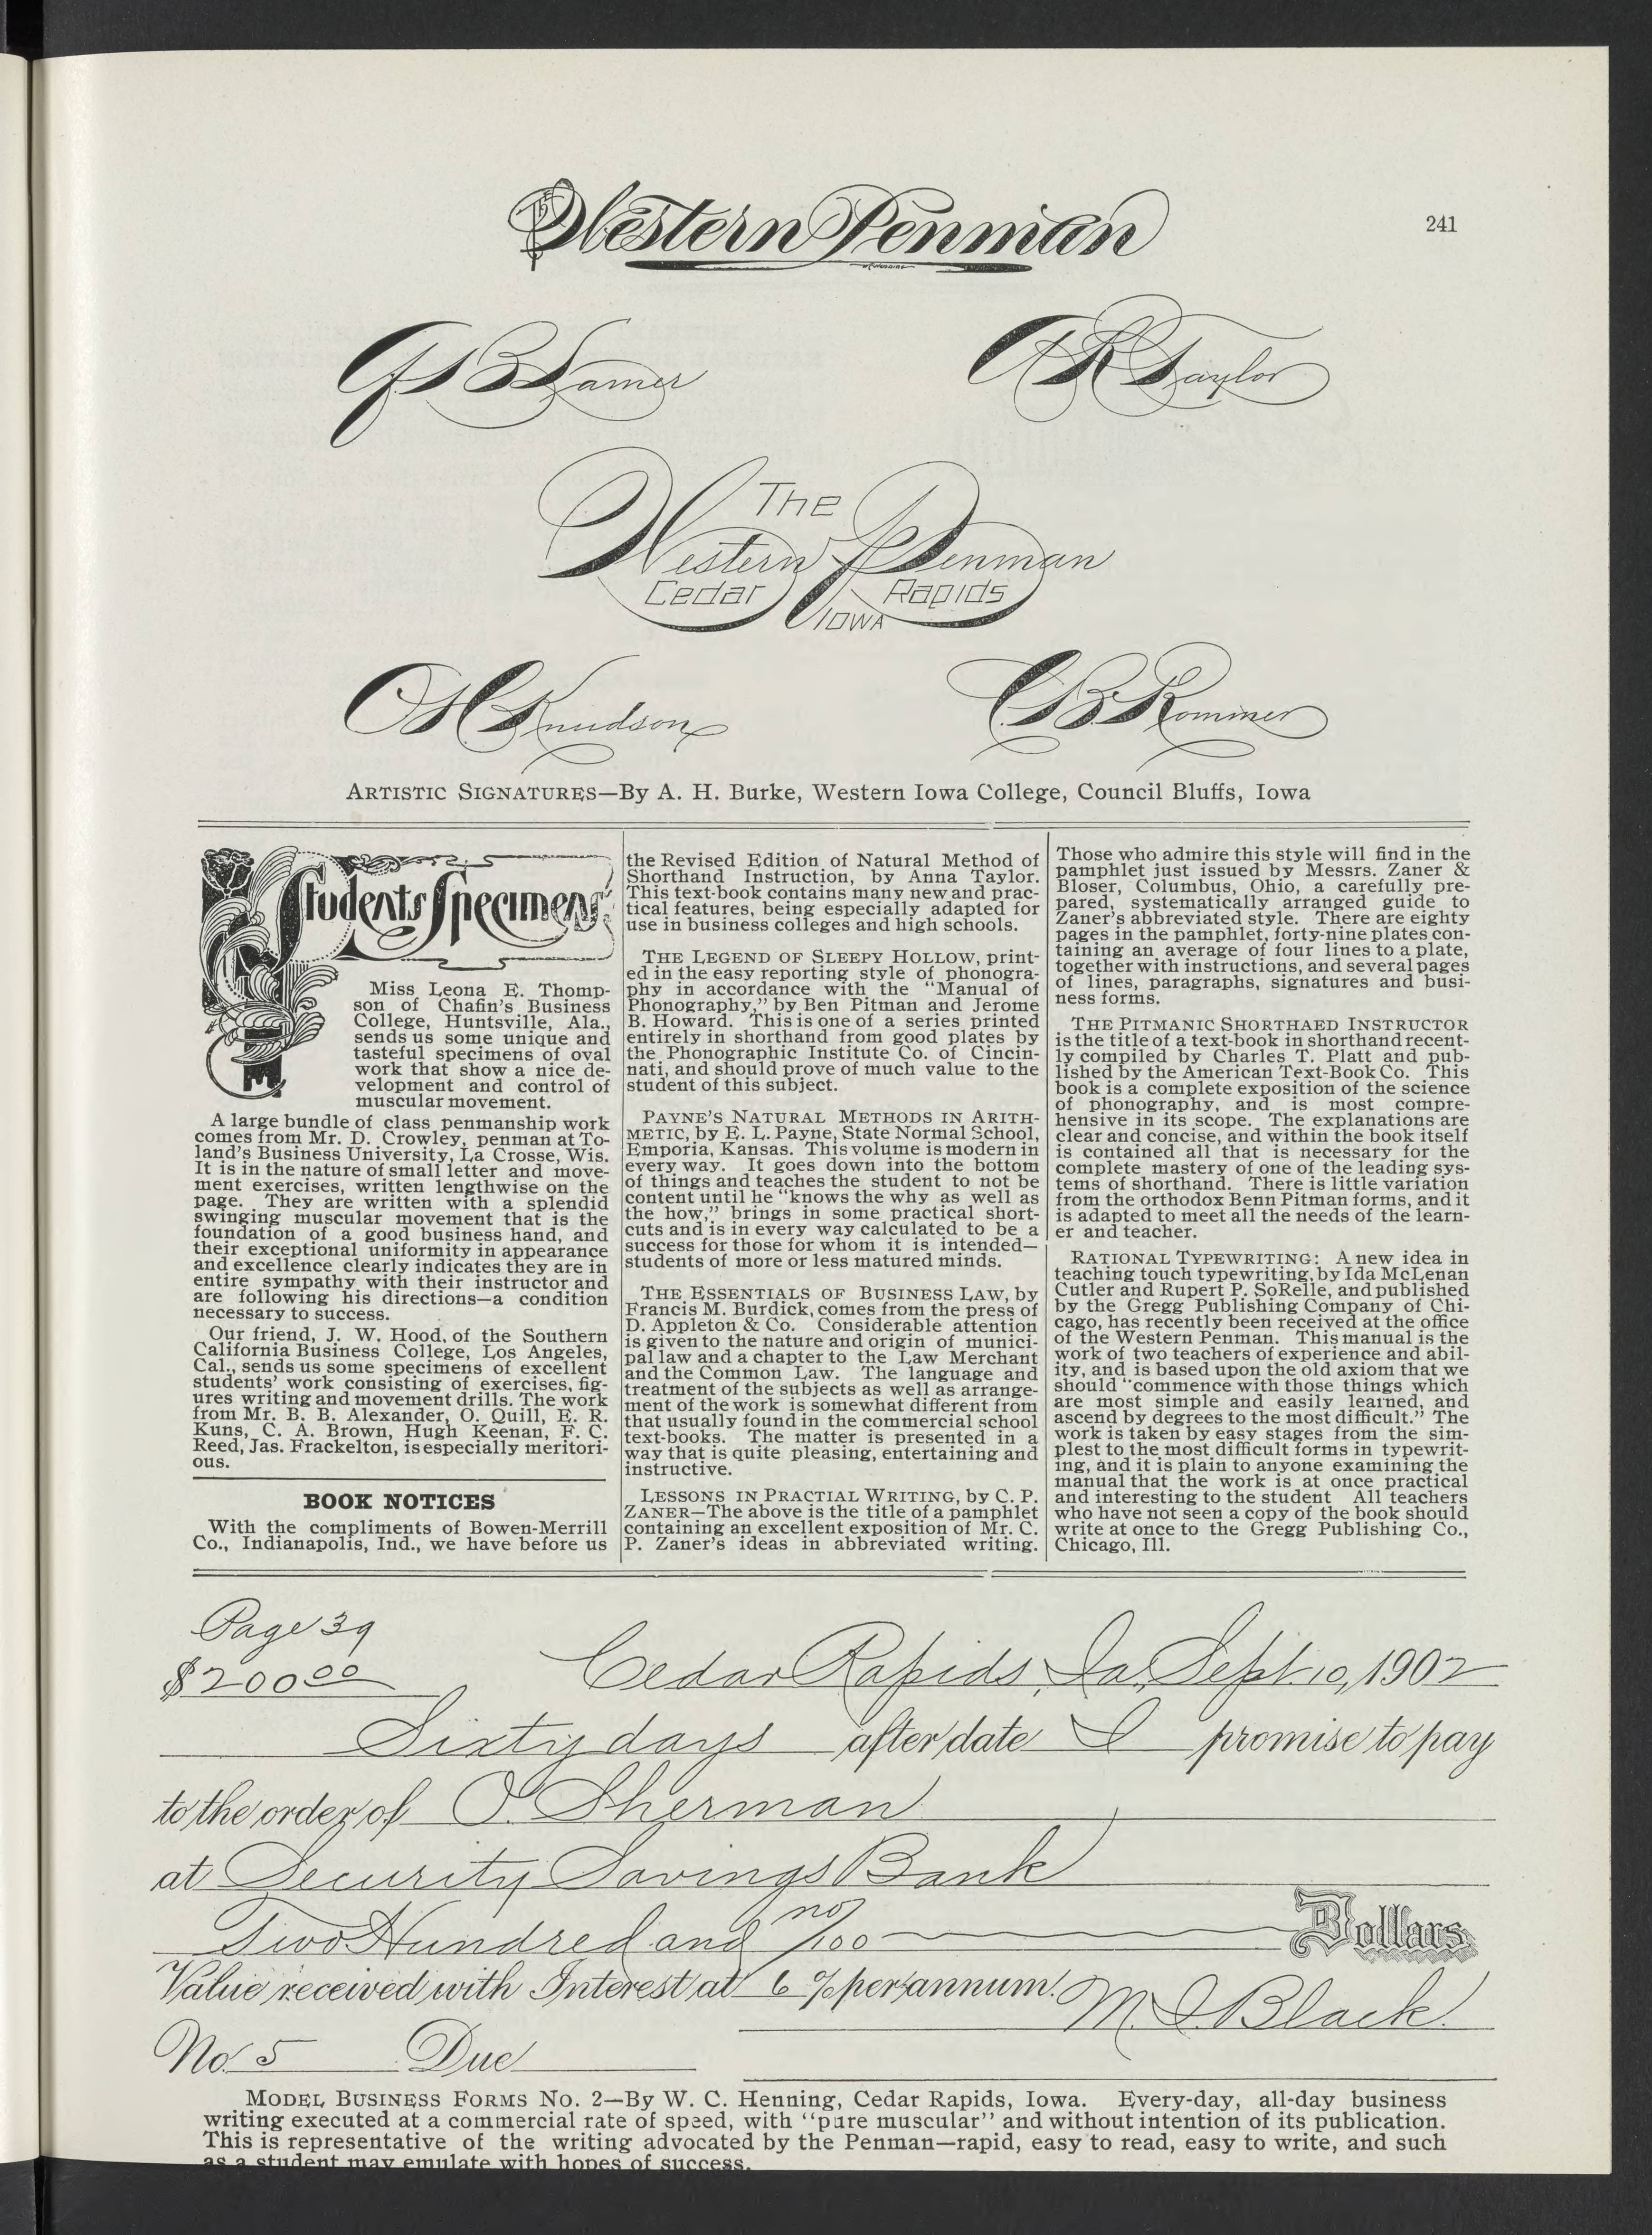 Western Penman
241
G S B Lamer
A R Taylor
The
Western Penman
Cedar Rapids
Iowa
O H C Knudson
C B Rommer
ARTISTIC SIGNATURES—By A. H. Burke, Western Iowa College, Council Bluffs, Iowa
Students' Specimens
Miss Leona E. Thomp-
son of Chafin's Business
College, Huntsville, Ala.,
sends us some unique and
tasteful specimens of oval
work that show a nice de-
velopment and control of
muscular movement.
A large bundle of class penmanship work
comes from Mr. D. Crowley, penman at To-
land's Business University, La Crosse, Wis.
It is in the nature of small letter and move-
ment exercises, written lengthwise on the
page. They are written with a splendid
swinging muscular movement that is the
foundation of a good business hand, and
their exceptional uniformity in appearance
and excellence clearly indicates they are in
entire sympathy with their instructor and
are following his directions—a condition
necessary to success.
Our friend, J. W. Hood, of the Southern
California Business College, Los Angeles,
Cal., sends us some specimens of excellent
students' work consisting of exercises, fig-
ures writing and movement drills. The work
from Mr. B. B. Alexander, O. Quill, E. R.
Kuns, C. A. Brown, Hugh Keenan, F. C.
Reed, Jas. Frackelton, is especially meritori-
ous.
BOOK NOTICES
With the compliments of Bowen-Merrill
Co., Indianapolis, Ind., we have before us
the Revised Edition of Natural Method of
Shorthand Instruction, by Anna Taylor.
This text-book contains many new and prac-
tical features, being especially adapted for
use in business colleges and high schools.
THE LEGEND OF SLEEPY HOLLOW, print-
ed in the easy reporting style of phonogra-
phy in accordance with the "Manual of
Phonography," by Ben Pitman and Jerome
B. Howard. This is one of a series printed
entirely in shorthand from good plates by
the Phonographic Institute Co. of Cincin-
nati, and should prove of much value to the
student of this subject.
PAYNE'S NATURAL METHODS IN ARITH-
METIC, by E. L. Payne, State Normal School,
Emporia, Kansas. This volume is modern in
every way. It goes down into the bottom
of things and teaches the student to not be
content until he "knows the why as well as
the how," brings in some practical short-
cuts and is in every way calculated to be a
success for those for whom it is intended—
students of more or less matured minds.
THE ESSENTIALS OF BUSINESS LAW, by
Francis M. Burdick, comes from the press of
D. Appleton & Co. Considerable attention
is given to the nature and origin of munici-
pal law and a chapter to the Law Merchant
and the Common Law. The language and
treatment of the subjects as well as arrange-
ment of the work is somewhat different from
that usually found in the commercial school
text-books. The matter is presented in a
way that is quite pleasing, entertaining and
instructive.
LESSONS IN PRACTIAL WRITING, by C. P.
ZANER—The above is the title of a pamphlet
containing an excellent exposition of Mr. C.
P. Zaner's ideas in abbreviated writing.
Those who admire this style will find in the
pamphlet just issued by Messrs. Zaner &
Bloser, Columbus, Ohio, a carefully pre-
pared, systematically arranged guide to
Zaner's abbreviated style. There are eighty
pages in the pamphlet, forty-nine plates con-
taining an average of four lines to a plate,
together with instructions, and several pages
of lines, paragraphs, signatures and busi-
ness forms.
THE PITMANIC SHORTHAED INSTRUCTOR
is the title of a text-book in shorthand recent-
ly compiled by Charles T. Platt and pub-
lished by the American Text-Book Co. This
book is a complete exposition of the science
of phonography, and is most compre-
hensive in its scope. The explanations are
clear and concise, and within the book itself
is contained all that is necessary for the
complete mastery of one of the leading sys-
tems of shorthand. There is little variation
from the orthodox Benn Pitman forms, and it
is adapted to meet all the needs of the learn-
er and teacher.
RATIONAL TYPEWRITING: A new idea in
teaching touch typewriting, by Ida McLenan
Cutler and Rupert P. SoRelle, and published
by the Gregg Publishing Company of Chi-
cago, has recently been received at the office
of the Western Penman. This manual is the
work of two teachers of experience and abil-
ity, and is based upon the old axiom that we
should "commence with those things which
are most simple and easily learned, and
ascend by degrees to the most difficult." The
work is taken by easy stages from the sim-
plest to the most difficult forms in typewrit-
ing, and it is plain to anyone examining the
manual that the work is at once practical
and interesting to the student All teachers
who have not seen a copy of the book should
write at once to the Gregg Publishing Co.,
Chicago, Ill.
Page 39
$200 00 Cedar Rapids, Ia., Sept. 10, 1902
Sixty days after date I promise to pay
to the order of O. Sherman
at Security Savings Bank
Two Hundred and no/100 Dollars
Value received with Interest at 6 % per annum.
M. I. Black.
No. 5 Due
MODEL BUSINESS FORMS NO. 2—By W. C. Henning, Cedar Rapids, Iowa. Every-day, all-day business
writing executed at a commercial rate of speed, with "pure muscular" and without intention of its publication.
This is representative of the writing advocated by the Penman—rapid, easy to read, easy to write, and such
as a student may emulate with hopes of success.